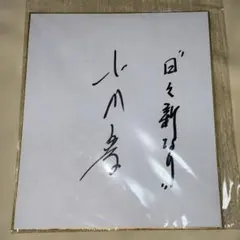 "日々新なり"
小川